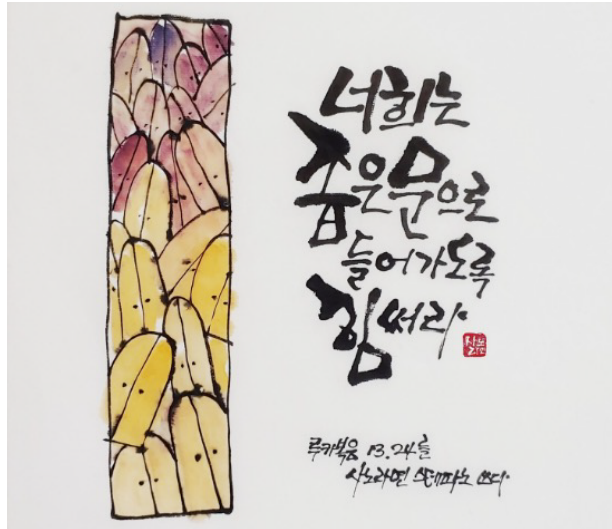 너희는
좁은 문으로
들어가도록
힘써라.
루카복음 13.24를
사노라면 스테파노 쓰다.